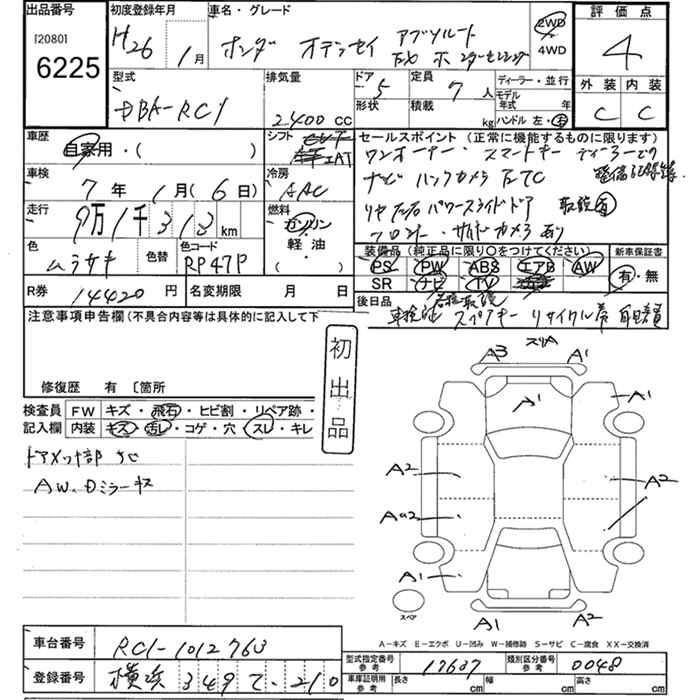 出品番号
120801
6225
初度登録年月
H26 1月
車名・グレード
ホンダ オデッセイ アブソルート
2WD
4WD
評価点
4
外装 内装
C C
型式
DBA-RC1
排気量
2400 CC
ドア 5
形状
定員 7人
積載 kg
ディーラー・並行
モデル
年式 年
ハンドル 左・右
車歴
自家用・( )
シフト
IAT
セールスポイント (正常に機能するものに限ります)
ワンオーナー スマートキー
ナビ バックカメラ ETC
パワースライドドア 取説有
サイドカメラ あり
車検
7年 1月(6日)
冷房
AAC
走行
9万1千313km
燃料
ガソリン
軽油
( )
色
ムラサキ
色替
色コード
RP47P
装備品 (純正品に限り○をつけてください)
PS PW ABS エアB AW
SR ナビ TV
新車保証書
有・無
R券 14420 円
名変期限 月 日
後日品
注意事項申告欄(不具合内容等は具体的に記入して下
初出品
修復歴 有 〔箇所
検査員
記入欄
FW キズ・飛石・ヒビ割・リペア跡・
内装 キズ・汚レ・コゲ・穴・スレ・キレ
AW、Dミラーキズ
A3 スリA A1
A1 A1
A2 A2
A1
A1 A2
スペア
A-キズ E-エクボ U-凹み W-補修跡 S-サビ C-腐食 XX-交換済
車台番号 RC1-1012763
登録番号 横浜 349 て 210
型式指定番号
参考
17637
類別区分番号
参考
0048
車庫証明用
参考
長さ cm
幅 cm
高さ cm